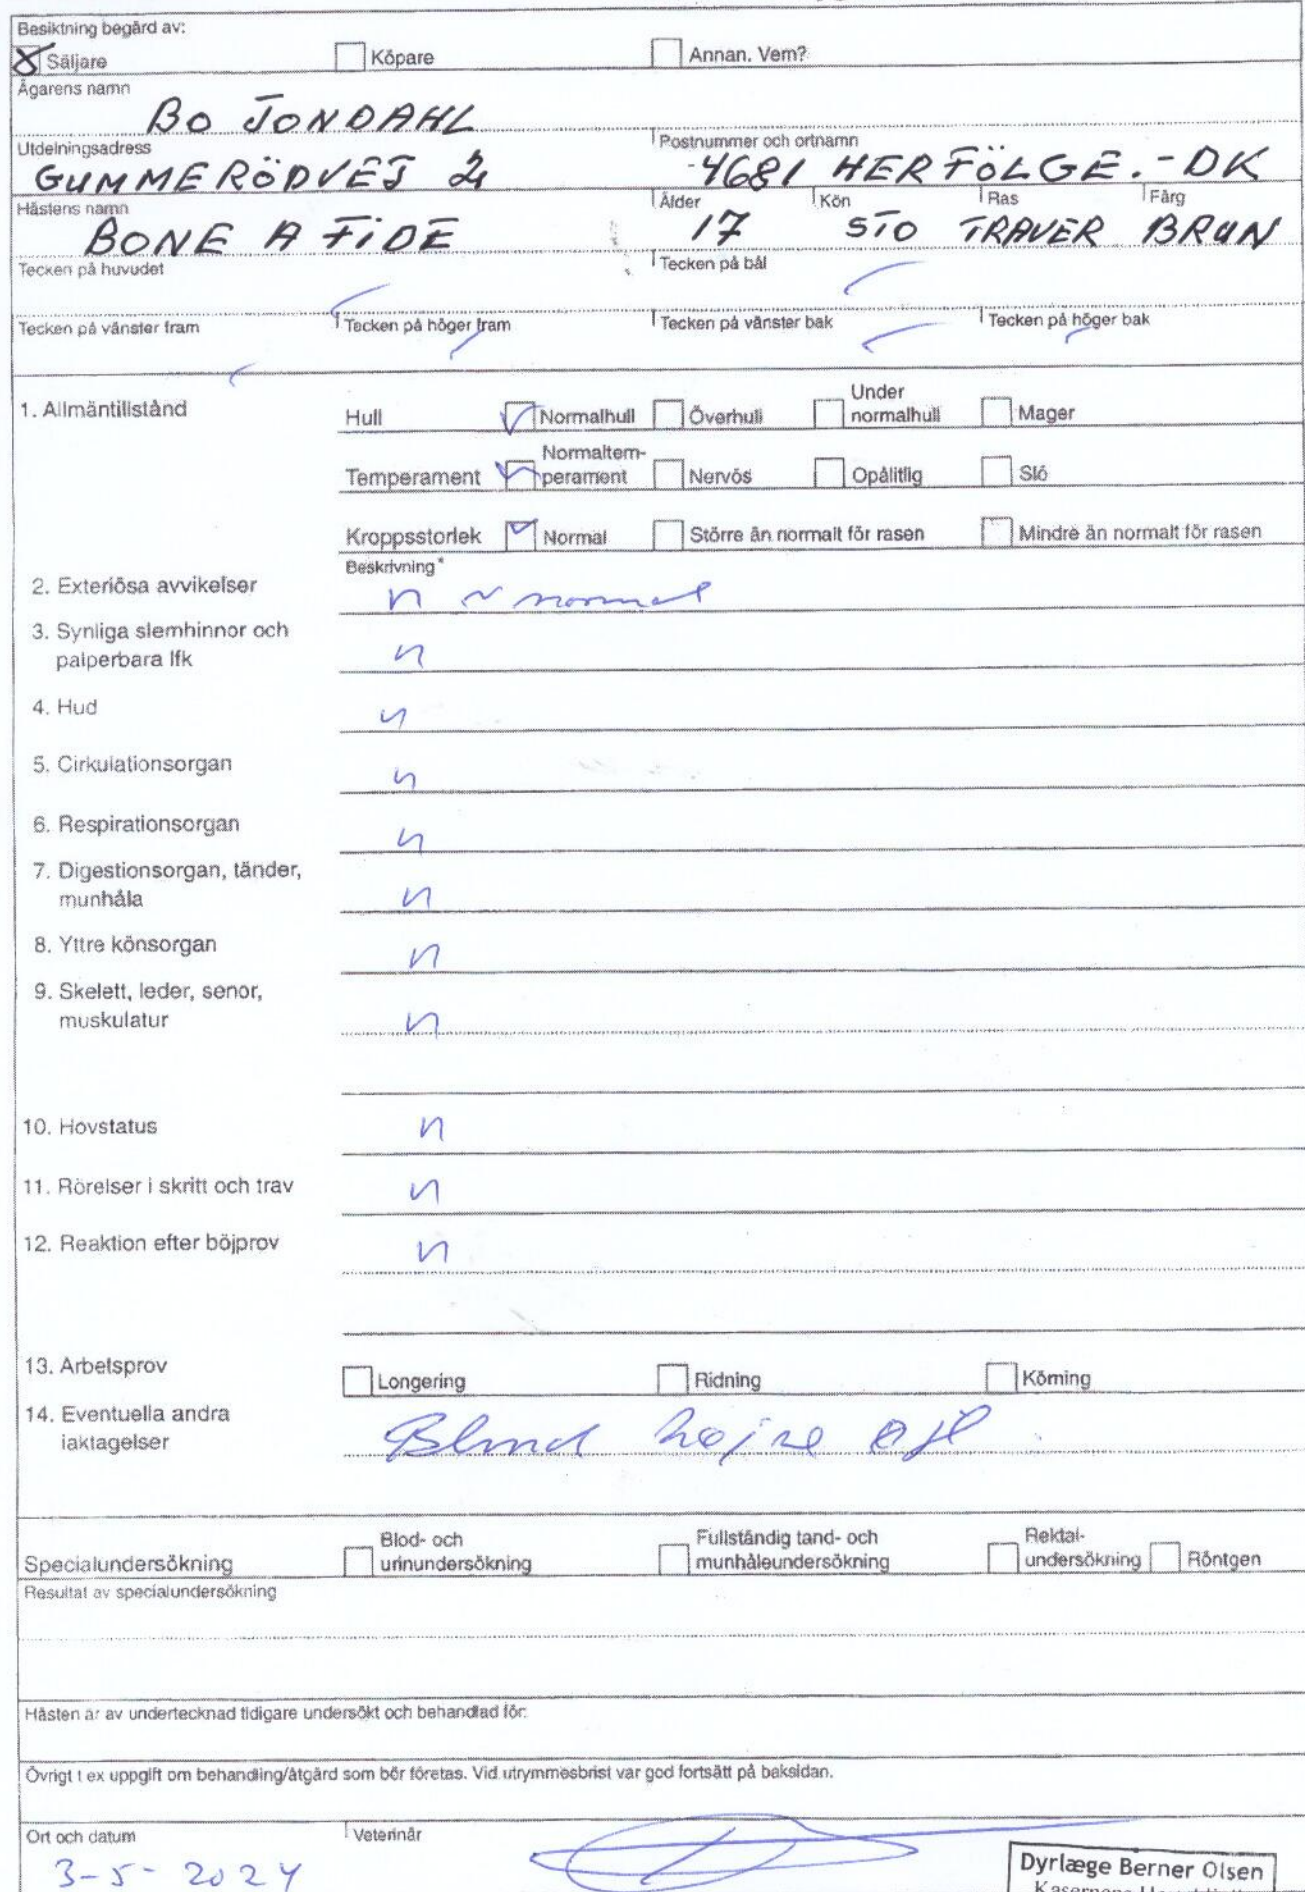 Besiktning begärd av:
Säljare Köpare Annan. Vem?
Ägarens namn
BO JONDAHL
Utdelningsadress Postnummer och ortnamn
GUMMERÖDVEJ 4681 HERFÖLGE.-DK
Hästens namn Ålder Kön Ras Färg
BONE A FIDE 17 STO TRAVER BRUN
Tecken på huvudet Tecken på bål
Tecken på vänster fram Tecken på höger fram Tecken på vänster bak Tecken på höger bak
1. Allmäntillstånd Hull Normalhull Överhull Under normalhull Mager
Temperament Normaltem-perament Nervös Opålitlig Slö
Kroppsstorlek Normal Större än normalt för rasen Mindre än normalt för rasen
Beskrivning*
2. Exteriösa avvikelser n ~ normal
3. Synliga slemhinnor och
palperbara lfk n
4. Hud n
5. Cirkulationsorgan n
6. Respirationsorgan n
7. Digestionsorgan, tänder,
munhåla n
8. Yttre könsorgan n
9. Skelett, leder, senor,
muskulatur n
10. Hovstatus n
11. Rörelser i skritt och trav n
12. Reaktion efter böjprov n
13. Arbetsprov Longering Ridning Körning
14. Eventuella andra
iaktagelser Blind højre øje
Specialundersökning Blod- och urinundersökning Fullständig tand- och munhåleundersökning Rektal-undersökning Röntgen
Resultat av specialundersökning
Hästen är av undertecknad tidigare undersökt och behandlad för:
Övrigt t ex uppgift om behandling/åtgärd som bör företas. Vid utrymmesbrist var god fortsätt på baksidan.
Ort och datum Veterinär
3-5-2024
Dyrlæge Berner Olsen